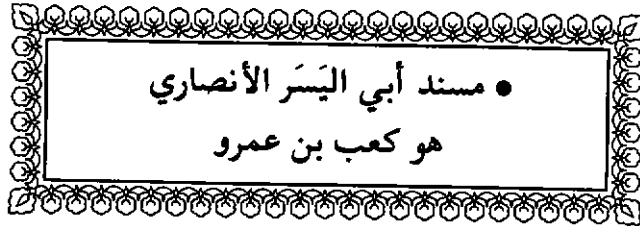 • مسند أبي اليَسَر الأنصاري
هو كعب بن عمرو